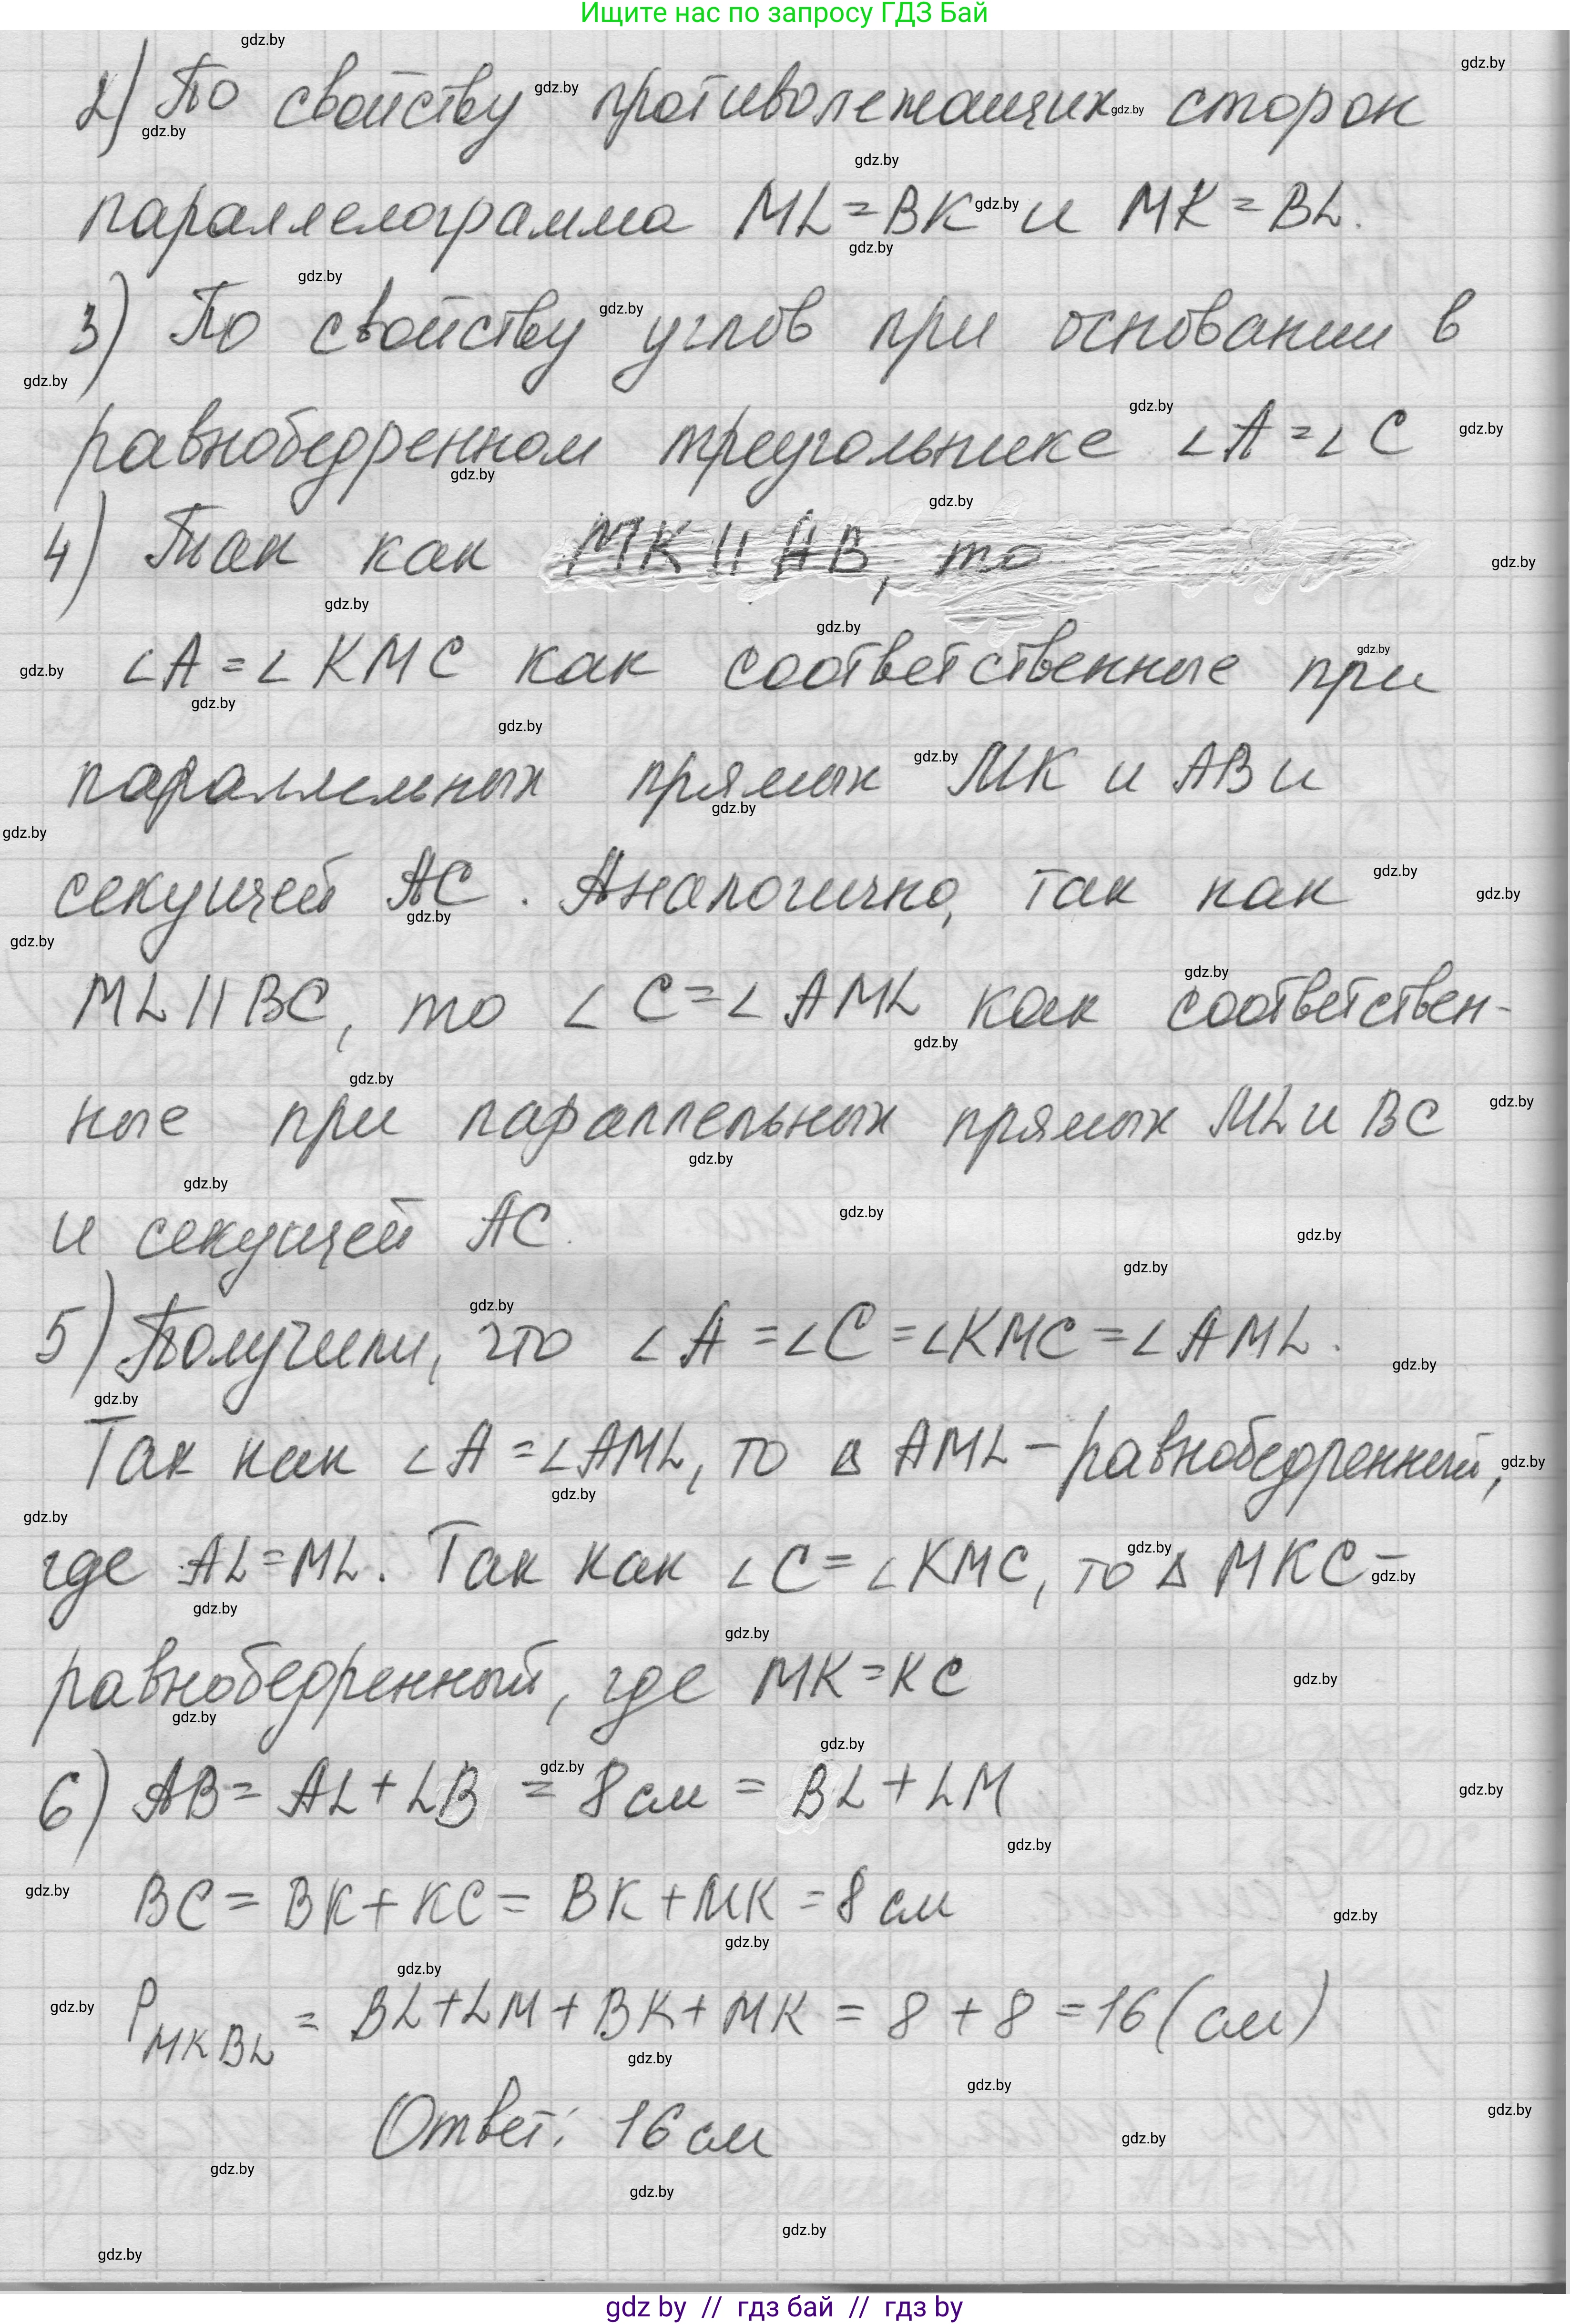 Ищите нас по запросу ГДЗ Бай
2) По свойству противолежащих сторон
параллелограмма ML = BK и MK = BL.
3) По свойству углов при основании в
равнобедренном треугольнике ∠A = ∠C
4) Так как MK || AB, то
∠A = ∠KMC как соответственные при
параллельных прямых MK и AB и
секущей AC. Аналогично, так как
ML || BC, то ∠C = ∠AML как соответствен-
ные при параллельных прямых ML и BC
и секущей AC.
5) Получили, что ∠A = ∠C = ∠KMC = ∠AML.
Так как ∠A = ∠AML, то △AML – равнобедренный,
где AL = ML. Так как ∠C = ∠KMC, то △MKC –
равнобедренный, где MK = KC
6) AB = AL + LB = 8 см = BL + LM
BC = BK + KC = BK + MK = 8 см
P MKBL = BL + LM + BK + MK = 8 + 8 = 16 (см)
Ответ: 16 см
gdz by // гдз бай // гдз by